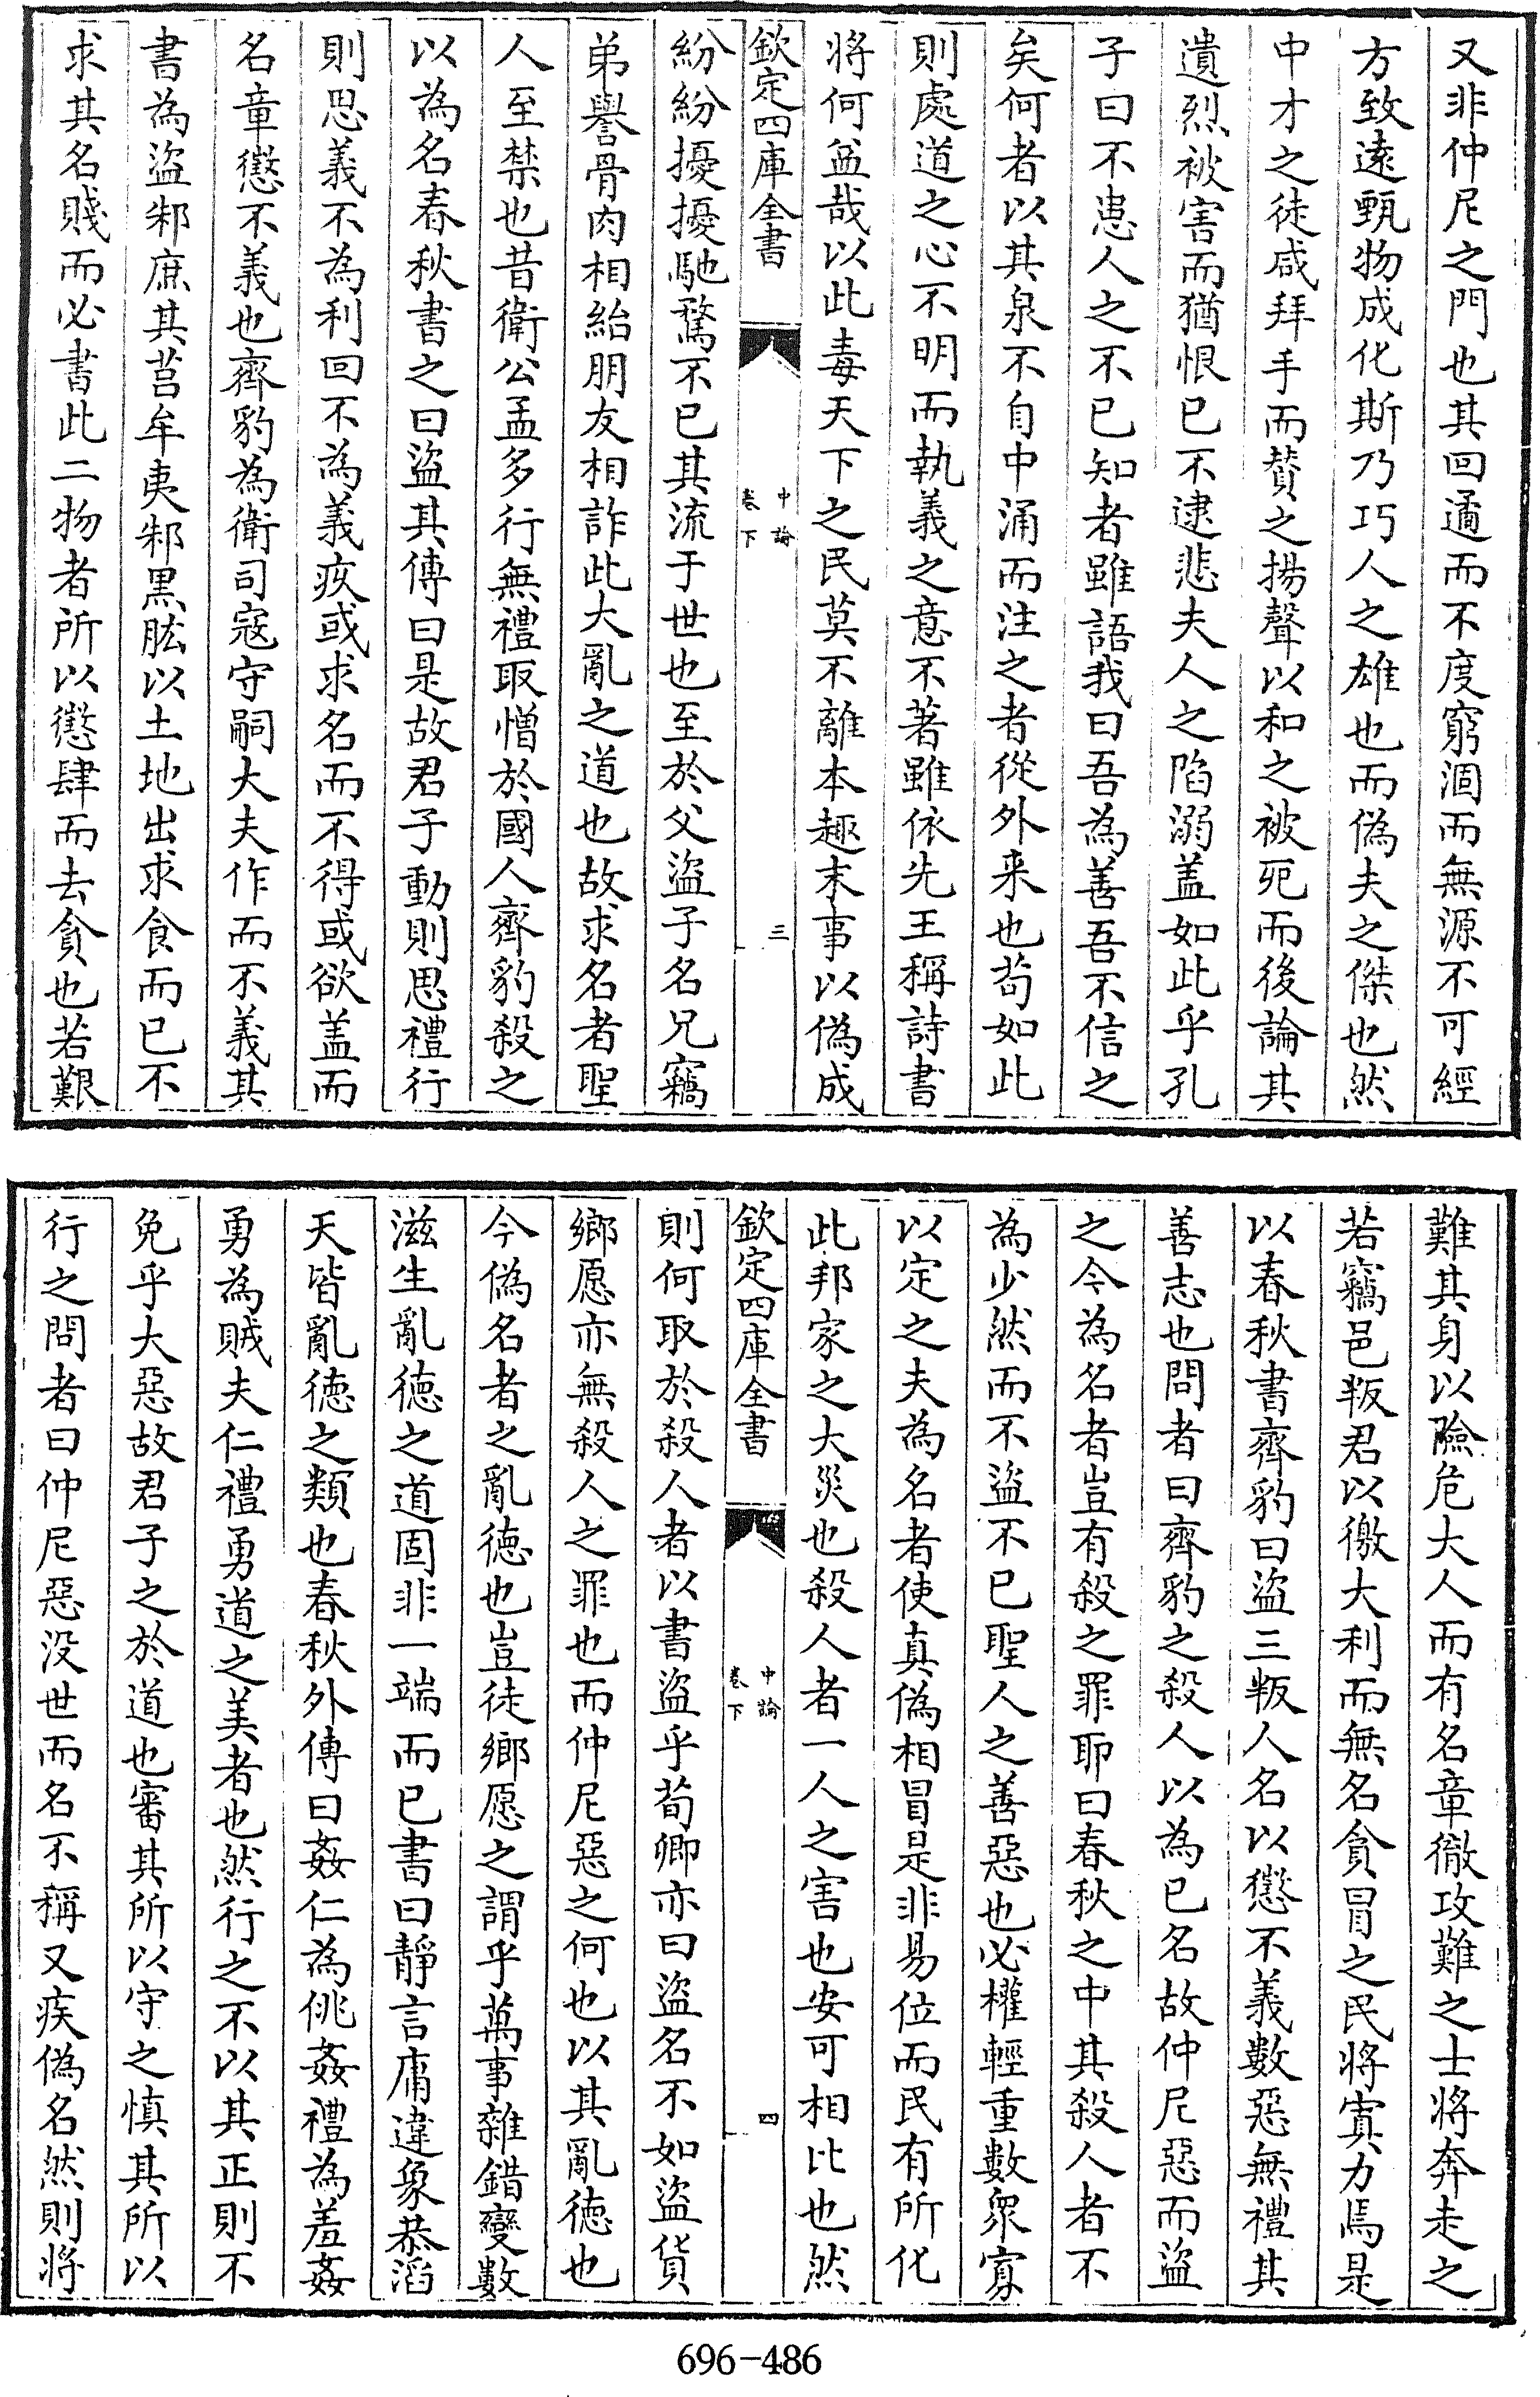 又非仲尼之門也其回遹而不度窮涸而無源不可經
方致遠甄物成化斯乃巧人之雄也而偽夫之傑也然
中才之徒咸拜手而賛之揚聲以和之被死而後論其
遺烈被害而猶恨已不逮悲夫人之陷溺盖如此乎孔
子曰不患人之不已知者雖語我曰吾為善吾不信之
矣何者以其泉不自中涌而注之者從外来也茍如此
則處道之心不明而執義之意不著雖依先王稱詩書
將何益哉以此毒天下之民莫不離本趣末事以偽成
欽定四庫全書
中論
卷下
三
紛紛擾擾馳騖不已其流于世也至於父盜子名兄竊
弟譽骨肉相紿朋友相詐此大亂之道也故求名者聖
人至禁也昔衛公孟多行無禮取憎於國人齊豹殺之
以為名春秋書之曰盜其傳曰是故君子動則思禮行
則思義不為利回不為義疚或求名而不得或欲盖而
名章懲不義也齊豹為衛司寇守嗣大夫作而不義其
書為盜邾庶其莒牟夷邾黑肱以土地出求食而已不
求其名賤而必書此二物者所以懲肆而去貪也若艱
難其身以險危大人而有名章徹攻難之士將奔走之
若竊邑叛君以徼大利而無名貪冒之民將寘力焉是
以春秋書齊豹曰盜三叛人名以懲不義數惡無禮其
善志也問者曰齊豹之殺人以為已名故仲尼惡而盜
之今為名者豈有殺之罪耶曰春秋之中其殺人者不
為少然而不盜不已聖人之善惡也必權輕重數衆寡
以定之夫為名者使真偽相冒是非易位而民有所化
此邦家之大災也殺人者一人之害也安可相比也然
欽定四庫全書
中論
卷下
四
則何取於殺人者以書盜乎荀卿亦曰盜名不如盜貨
鄉愿亦無殺人之罪也而仲尼惡之何也以其亂徳也
今偽名者之亂徳也豈徒鄉愿之謂乎萬事雜錯變數
滋生亂徳之道固非一端而已書曰靜言庸違象恭滔
天皆亂徳之類也春秋外傳曰姦仁為佻姦禮為羞姦
勇為賊夫仁禮勇道之美者也然行之不以其正則不
免乎大惡故君子之於道也審其所以守之慎其所以
行之問者曰仲尼惡没世而名不稱又疾偽名然則將
696-486